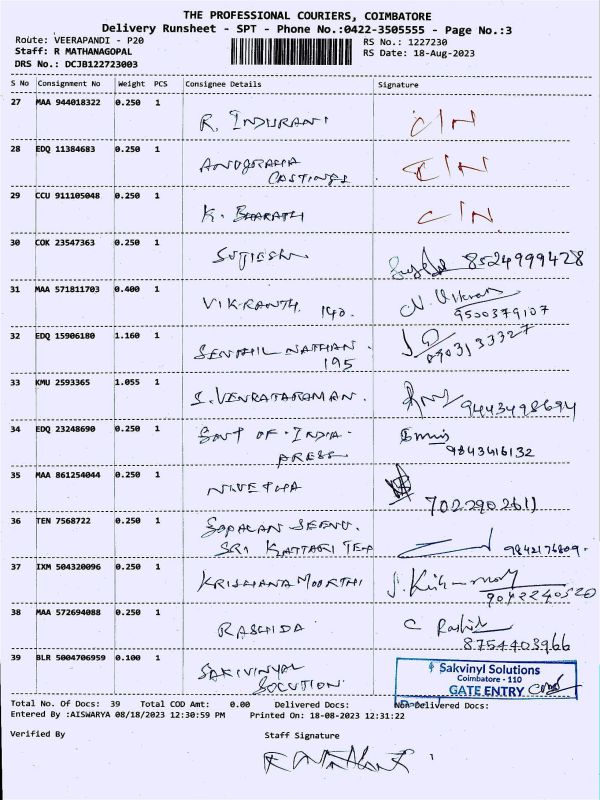 THE PROFESSIONAL COURIERS, COIMBATORE
Delivery Runsheet - SPT - Phone No.:0422-3505555 - Page No.:3
Route: VEERAPANDI - P20 RS No.: 1227230
Staff: R MATHANAGOPAL RS Date: 18-Aug-2023
DRS No.: DCJB122723003
S No Consignment No Weight PCS Consignee Details Signature
27 MAA 944018322 0.250 1
R. INDURANI C/N
28 EDQ 11384683 0.250 1
ANUGRAHA C/N
CASTINGS
29 CCU 911105048 0.250 1
K. BHARATH C/N
30 COK 23547363 0.250 1
8524999428
31 MAA 571811703 0.400 1
VIKRANTH. 140. N. Vikran
9500379107
32 EDQ 15906180 1.160 1
SENTHIL NATHAN. 8903133327
195
33 KMU 2593365 1.055 1
S. VENKATARAMAN. 9443498694
34 EDQ 23248690 0.250 1
GOVT OF. INDIA.
PRESS. 9843416132
35 MAA 861254044 0.250 1
NIVETHA
7022902611
36 TEN 7568722 0.250 1
GOPALAN SEENU.
SRI 9842176809.
37 IXM 504320096 0.250 1
KRISHANA MOORTHI
9042240520
38 MAA 572694088 0.250 1
RASHIDA C Rashid
8754403966
39 BLR 5004706959 0.100 1
SAKIVINYAL
SOLUTION.
Sakvinyl Solutions
Coimbatore - 110
GATE ENTRY
Total No. Of Docs: 39 Total COD Amt: 0.00 Delivered Docs: Non Delivered Docs:
Entered By :AISWARYA 08/18/2023 12:30:59 PM Printed On: 18-08-2023 12:31:22
Verified By Staff Signature